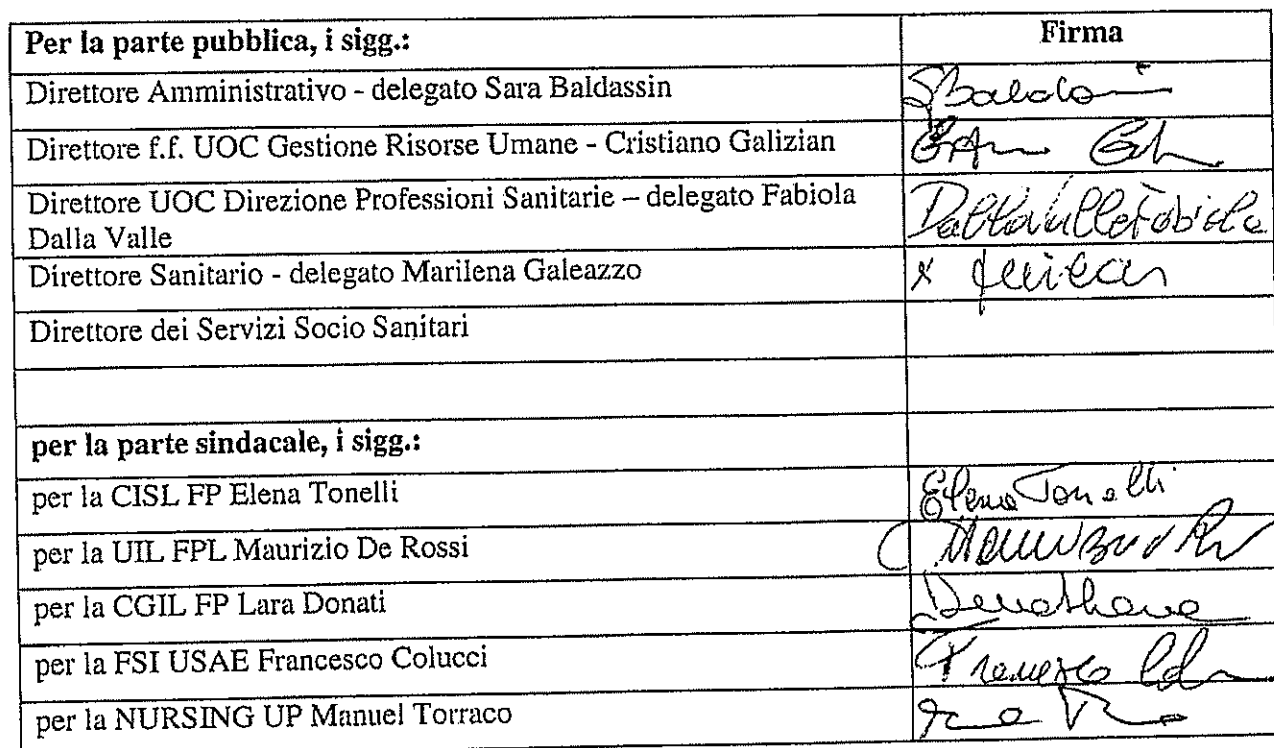 Per la parte pubblica, i sigg.: Firma
Direttore Amministrativo - delegato Sara Baldassin
Direttore f.f. UOC Gestione Risorse Umane - Cristiano Galizian
Direttore UOC Direzione Professioni Sanitarie – delegato Fabiola
Dalla Valle Dalla Valle Fabiola
Direttore Sanitario - delegato Marilena Galeazzo x
Direttore dei Servizi Socio Sanitari
per la parte sindacale, i sigg.:
per la CISL FP Elena Tonelli Elena Tonelli
per la UIL FPL Maurizio De Rossi
per la CGIL FP Lara Donati
per la FSI USAE Francesco Colucci Francesco
per la NURSING UP Manuel Torraco